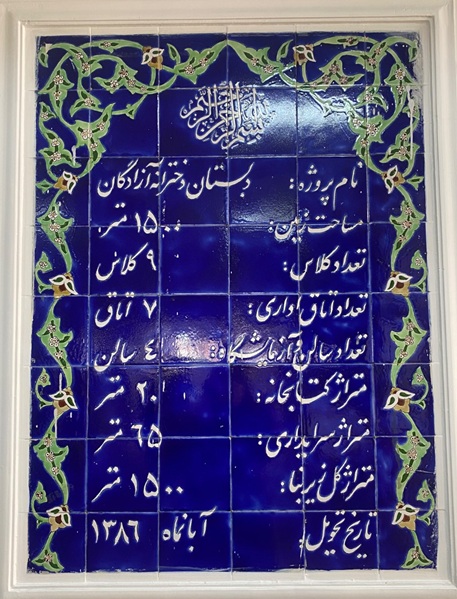 بسم الله الرحمن الرحیم
نام پروژه: دبستان دخترانه آزادگان
مساحت زمین: ۱۵۰۰ متر
تعداد کلاس: ۹ کلاس
تعداد اتاق اداری: ۷ اتاق
تعداد سالن و آزمایشگاه: ٤ سالن
متراژ کتابخانه: ۲۰ متر
متراژ سرایداری: ٦۵ متر
متراژ کل زیربنا: ۱۵۰۰ متر
تاریخ تحویل: آبانماه ۱۳۸٦